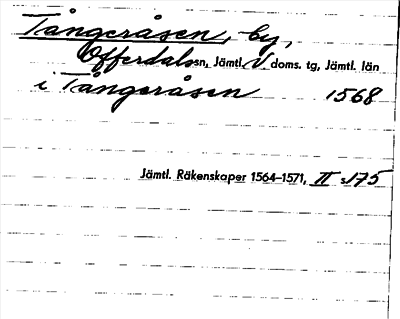 Tångeråsen, by,
Offerdals sn, Jämtl. V doms. tg, Jämtl. län
i Tångeråsen 1568
Jämtl. Räkenskaper 1564–1571, II s. 175